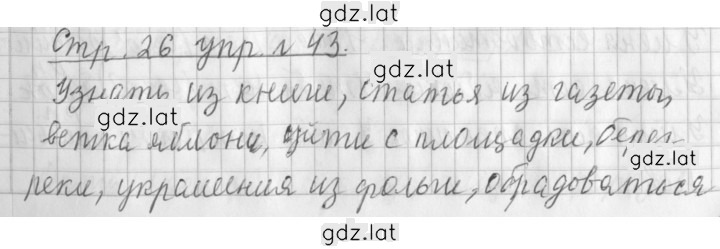 gdz.lat
Стр. 26 упр. № 43.
gdz.lat
Узнать из книги, статья из газеты,
gdz.lat
ветка яблони, уйти с площадки, берег
gdz.lat
реки, украшения из фольги, обрадоваться
gdz.lat